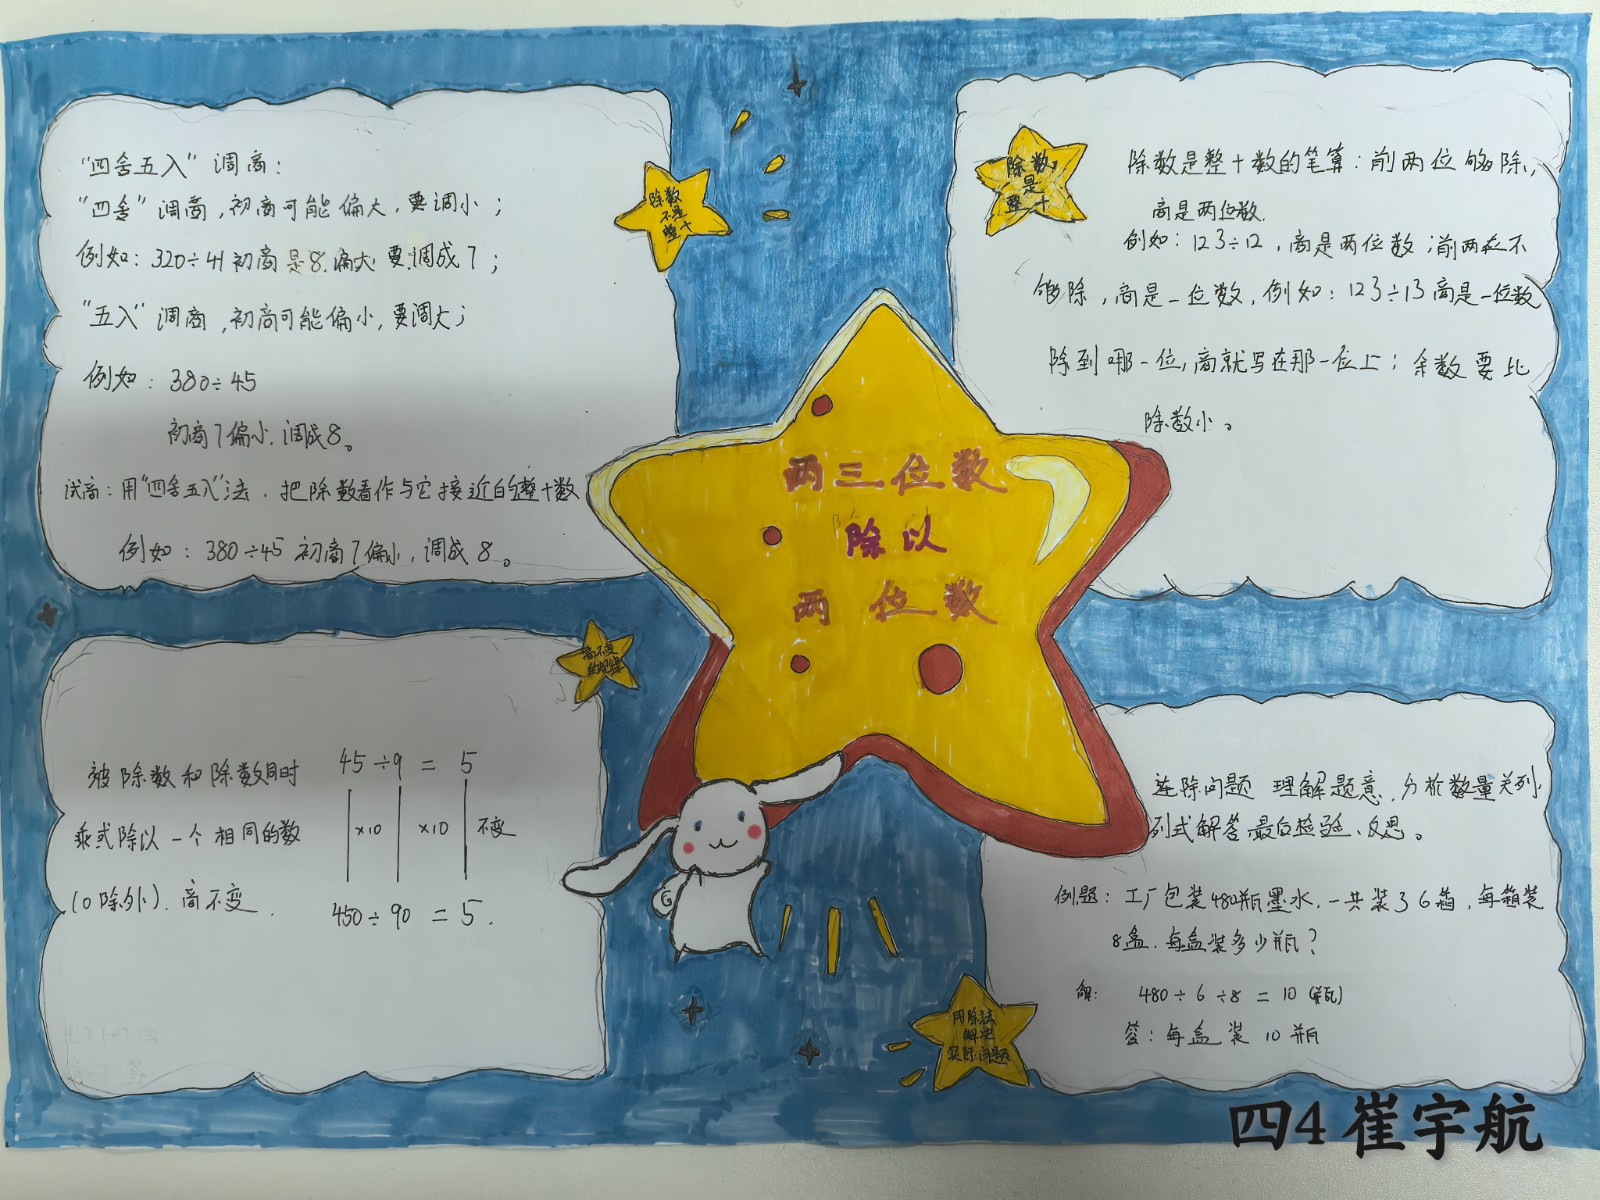 “四舍五入”调商：
“四舍”调商，初商可能偏大，要调小；
例如：320÷41初商是8，偏大，要调成7；
“五入”调商，初商可能偏小，要调大；
例如：380÷45
初商7偏小，调成8。
试商：用“四舍五入”法，把除数看作与它接近的整十数
例如：380÷45 初商7偏小，调成8。
除数
不是
整十
除数
是
整十
除数是整十数的笔算：前两位够除，
商是两位数。
例如：123÷12，商是两位数；前两位不
够除，商是一位数，例如：123÷13商是一位数
除到哪一位，商就写在那一位上；余数要比
除数小。
两三位数
除以
两位数
商不变
的规律
被除数和除数同时
乘或除以一个相同的数
(0除外)．商不变．
45÷9＝5
×10 ×10 不变
450÷90＝5．
连除问题 理解题意，分析数量关系
列式解答 最后检验、反思。
例题：工厂包装480瓶墨水，一共装36箱，每箱装
8盒，每盒装多少瓶？
解：480÷6÷8＝10(瓶)
答：每盒装10瓶
用除法
解决
实际问题
四4 崔宇航